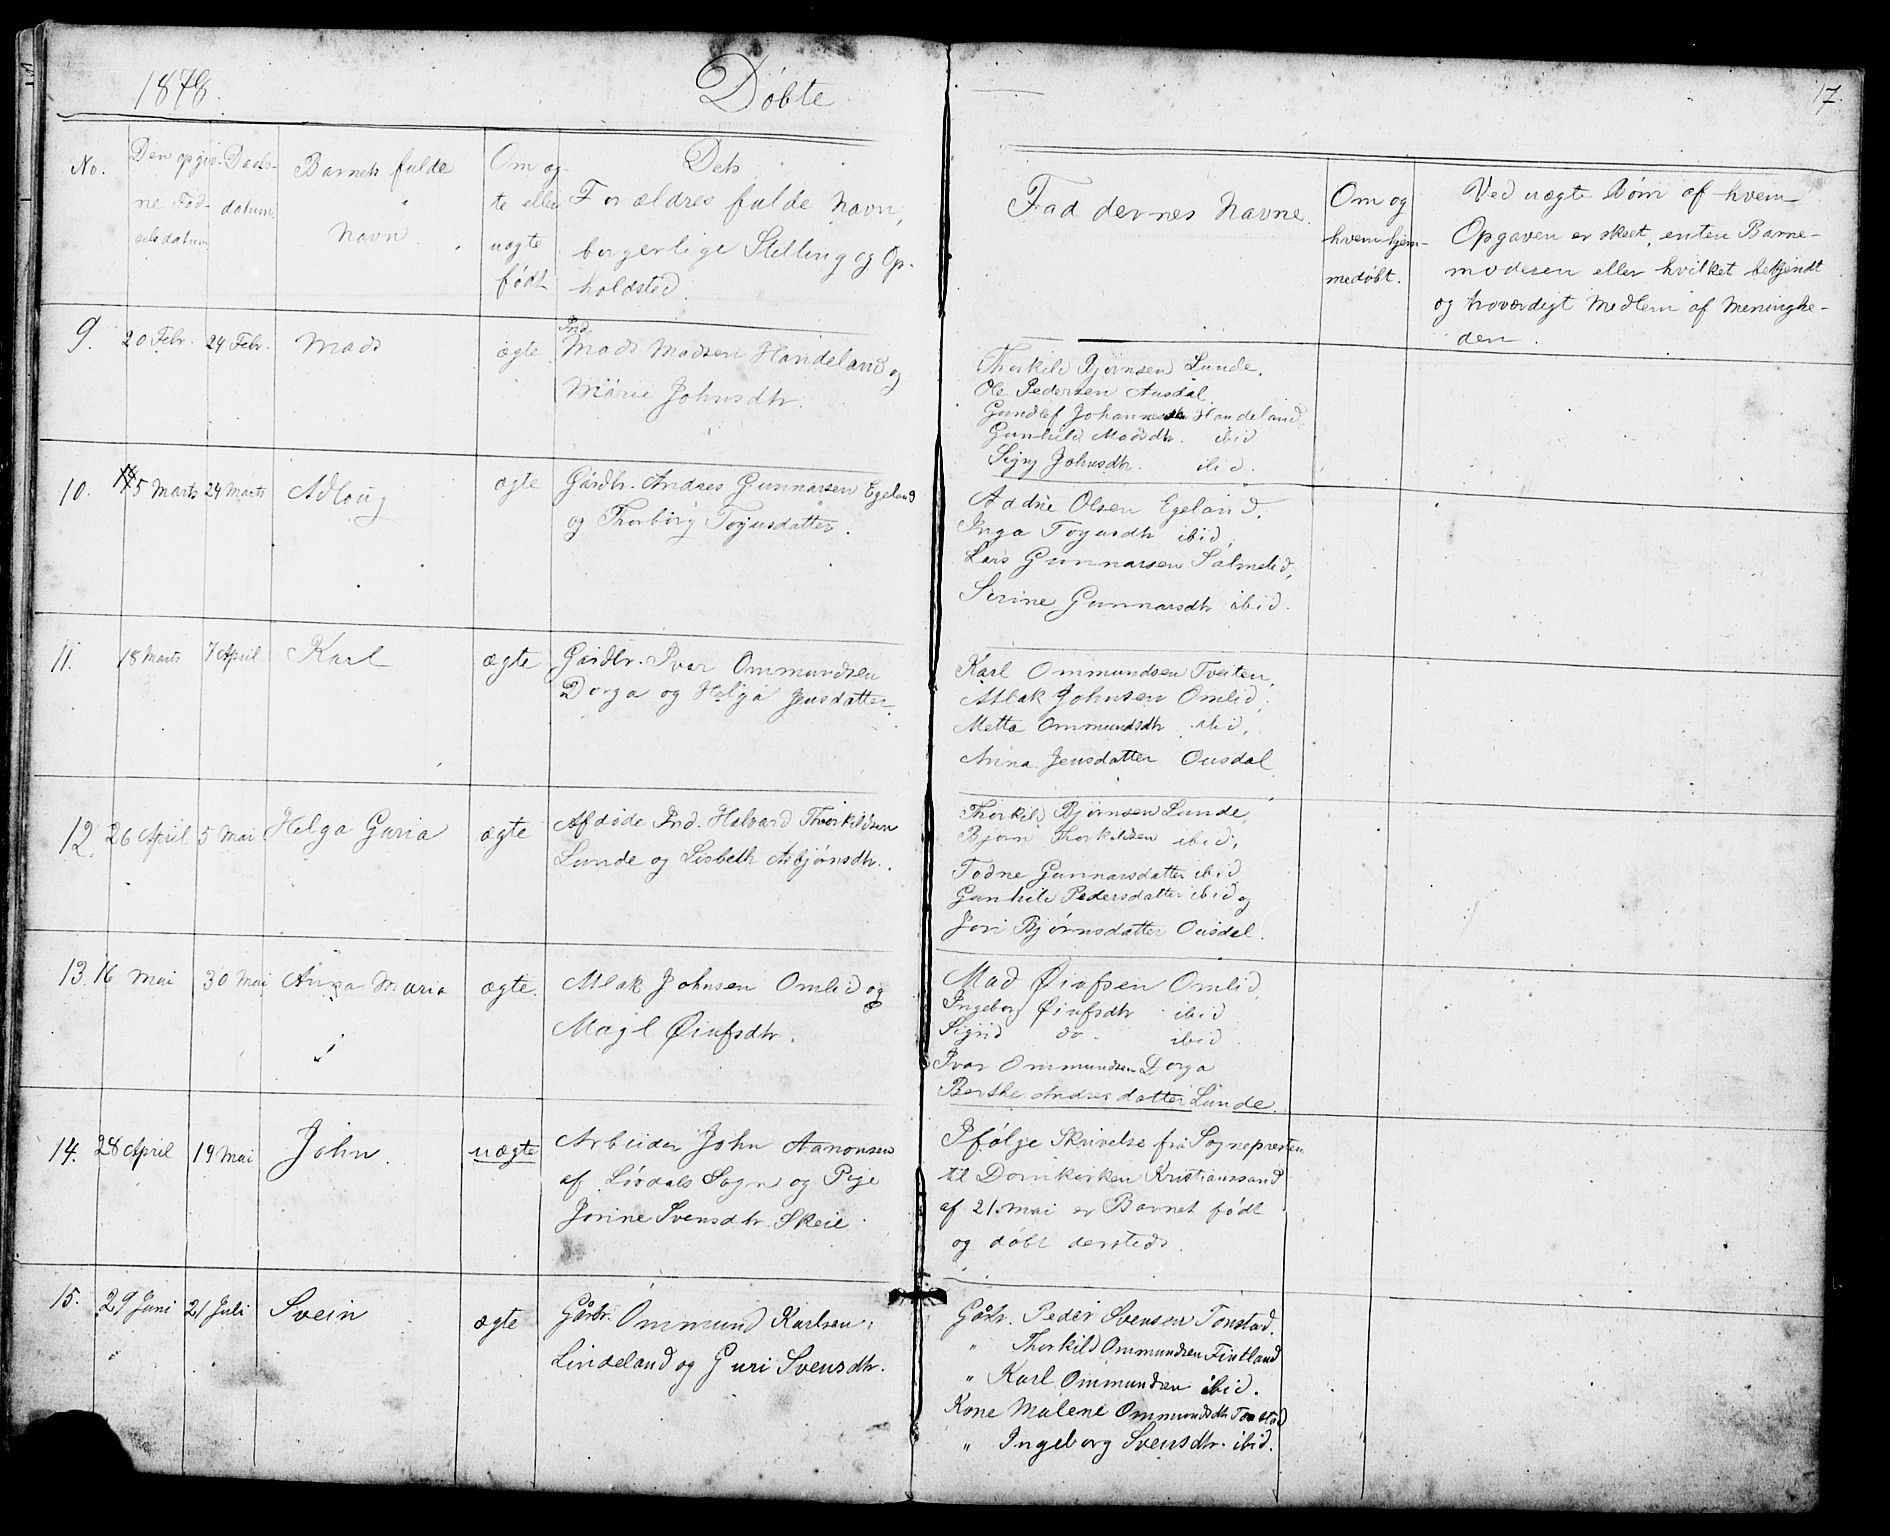 1878. Døbte
17.
No.
Den opgiv-
ne Fød-
selsdatum
Daabs-
datum
Barnets fulde
Navn
Om æg-
te eller
uægte
født
Dets
Forældres fulde Navn,
borgerlige Stilling og Op-
holdsted.
Faddernes Navne.
Om og
hvem hjem-
medøbt.
Ved uægte Børn af hvem
Opgaven er skeet, enten Barne-
moderen eller hvilket bekjendt
og troværdigt Medlem af Menighe-
den.
9. 20 Febr. 24 Febr. Mads ægte
Ind.
Mads Madsen Handeland og
Marie Johnsdtr.
Thorkild Bjørnsen Lunde,
Ole Pedersen Ausdal,
Gundlef Johannesen Handeland
Gunhild Madsdtr. ibid
Sigry Johnsdtr. ibid.
10. 15 Marts 24 Marts Adloug ægte
Gårdbr. Andres Gunnarsen Egeland
og Thorborg Tojusdatter.
Addne Olsen Egeland,
Inga Tojusdtr ibid,
Lars Gunnarsen Salmelid,
Serine Gunnarsdtr ibid.
11. 18 Marts 7 April Karl ægte
Gårdbr. Ivar Ommundsen
Dorga og Helga Jensdatter.
Karl Ommundsen Tveiten,
Atlak Johnsen Omlid,
Metta Ommundsdtr ibid,
Anna Jensdatter Ousdal
12. 26 April 5 Mai Helga Guria ægte
Afdøde Ind. Halvard Thorkildsen
Lunde og Lisbeth Asbjørnsdtr.
Thorkild Bjørnsen Lunde,
Bjørn Thorkildsen ibid,
Todne Gunnarsdatter ibid
Gunhild Pedersdatter ibid og
Jori Bjørnsdatter Ousdal.
13. 16 Mai 30 Mai Anna Maria ægte.
Atlak Johnsen Omlid og
Magl Øiufsdtr.
Mad Øiufsen Omlid,
Ingeborg Øiufsdtr ibid
Sigrid do. ibid
Ivar Ommundsen Dorga
Berthe Andresdatter Lunde.
14. 28 April 19 Mai John. uægte
Arbeider John Aanonsen
af Siredals Sogn og Pige
Jorine Svensdtr. Skeie.
Ifølge Skrivelse fra Sognepresten
til Domkirken Kristianssand
af 21. Mai er Barnet født
og døbt dersteds.
15. 29 Juni 21 Juli Svein ægte
Gårbr. Ommund Karlsen
Lindeland og Guri Svensdtr.
Gårbr. Peder Svensen Tonstad.
" Thorkild Ommundsen Fintland
" Karl Ommundsen ibid.
Kone Malene Ommundsdtr Tonstad
" Ingeborg Svensdtr. ibid.